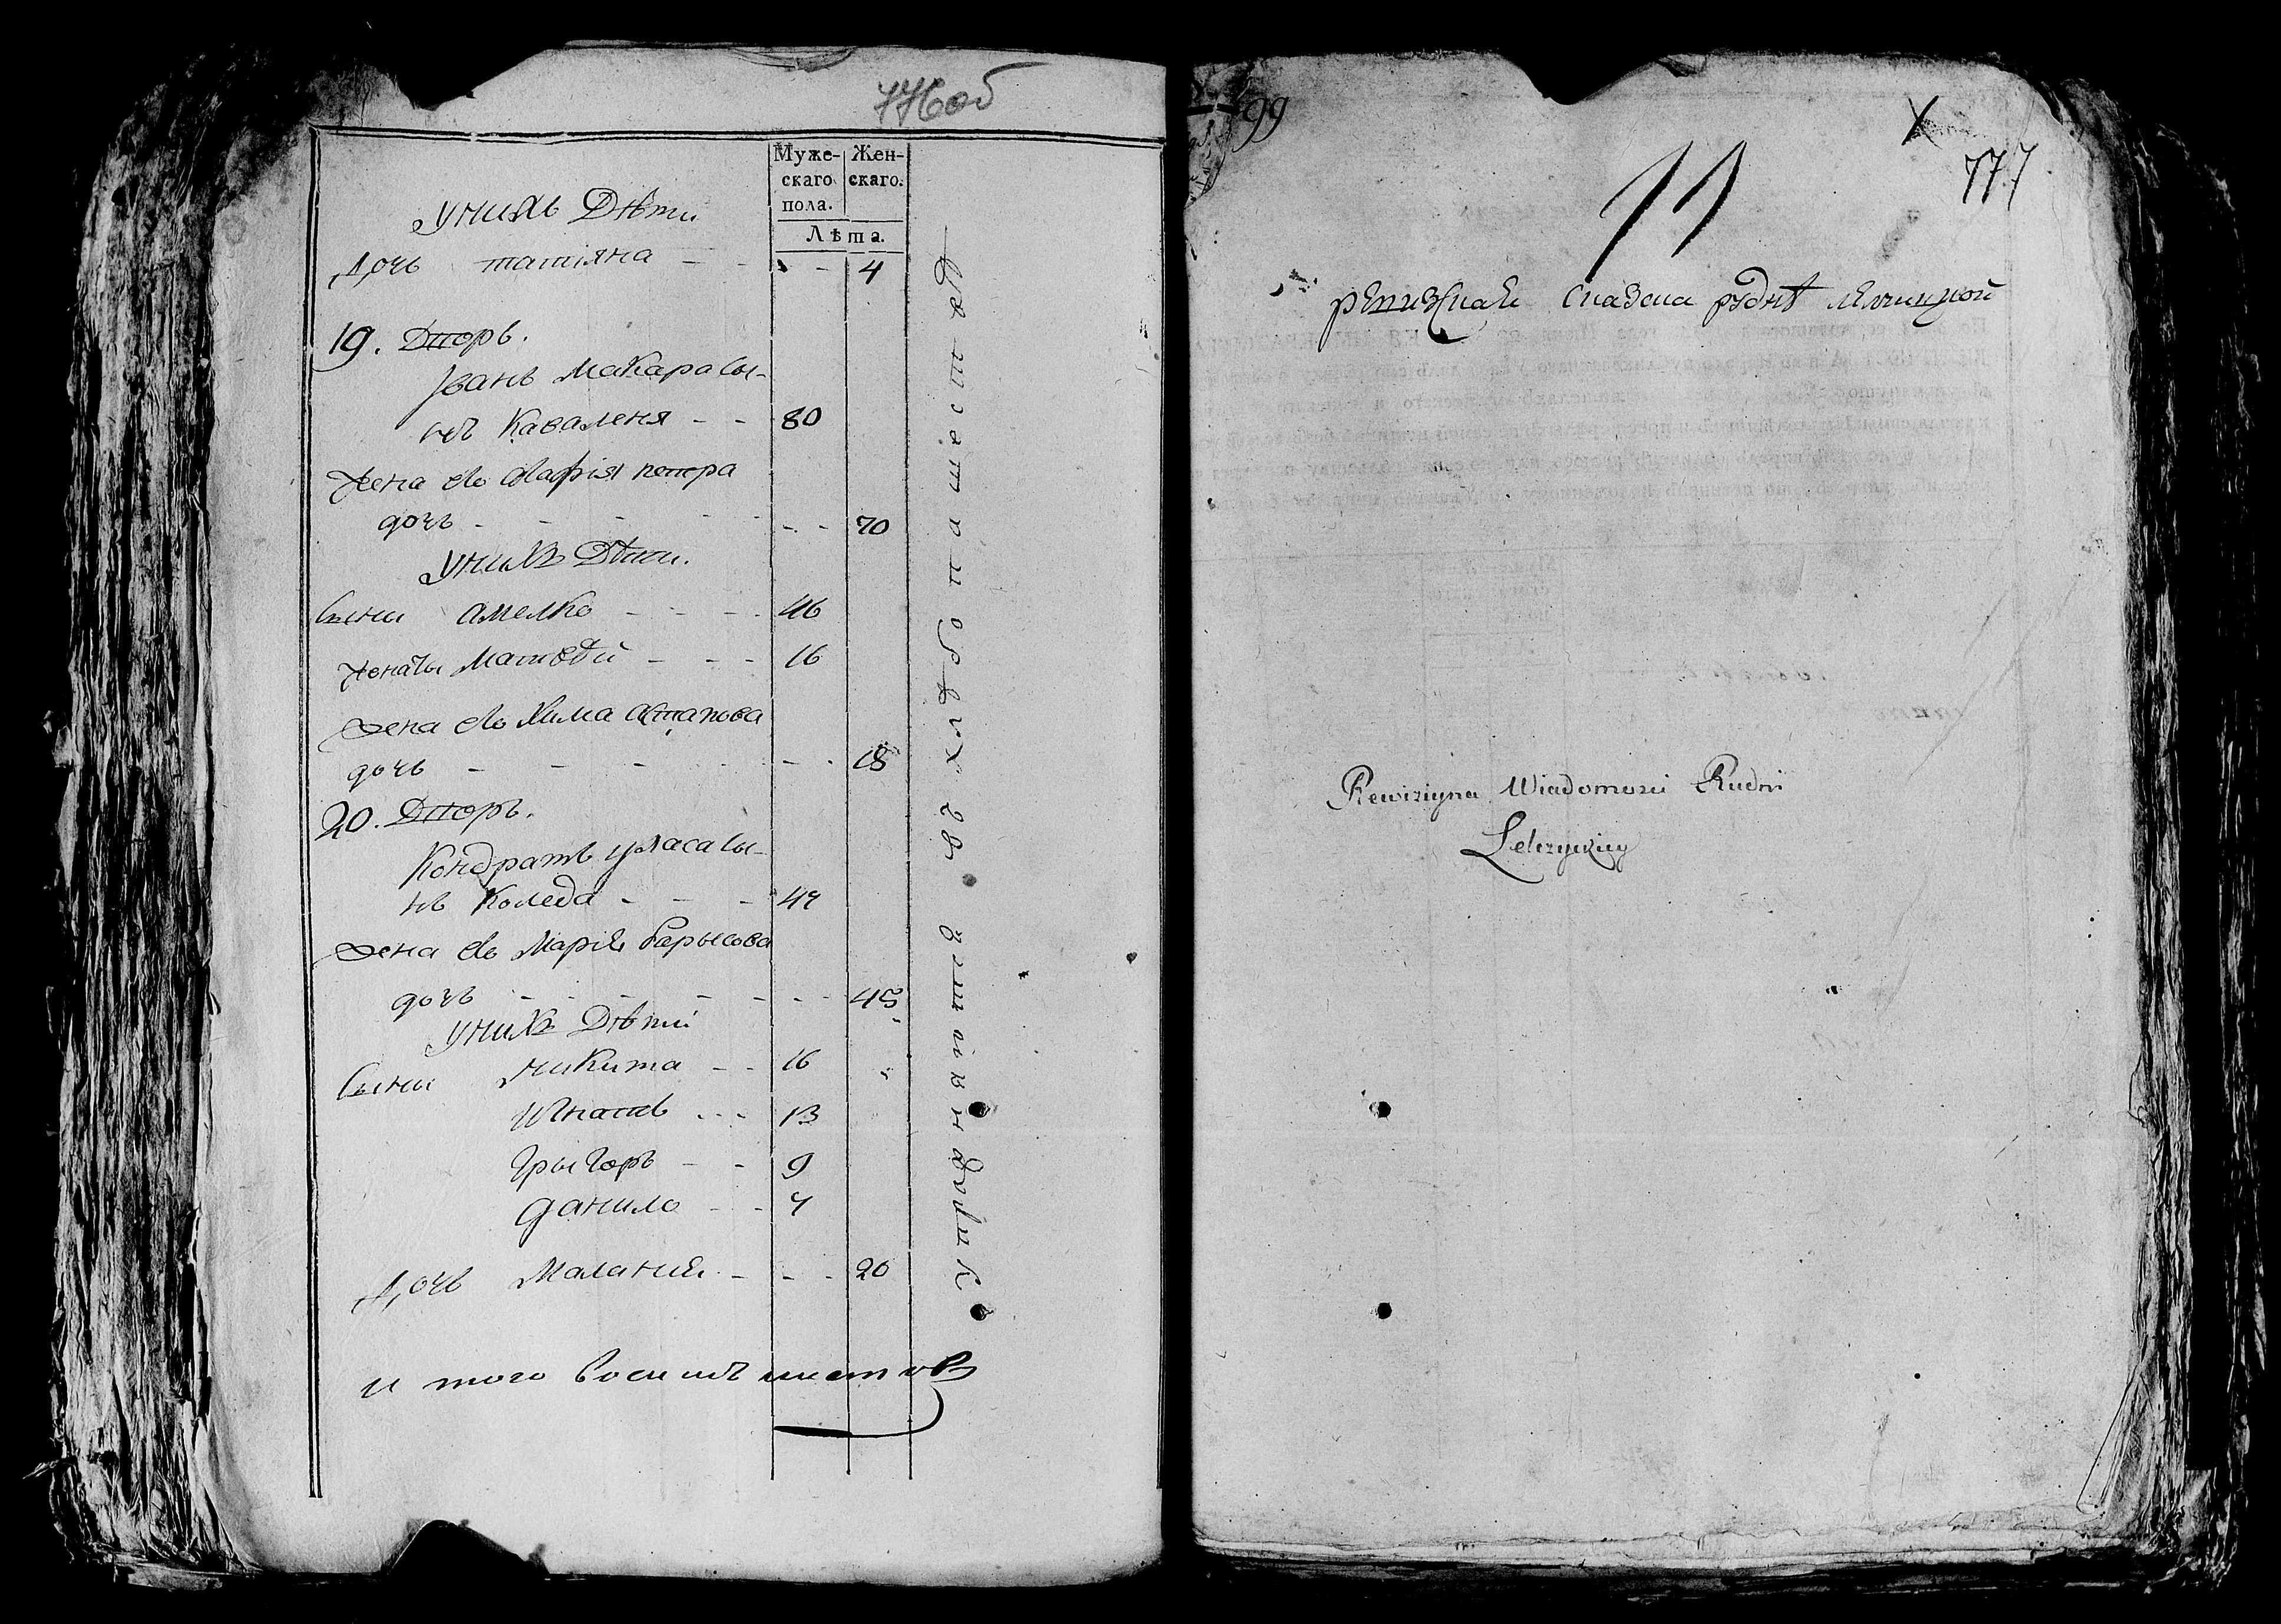 776об
Муже-
скаго
пола.
Жен-
скаго.
Лѣта.
Уних Дѣти
Дочь татіяна - - - - 4
19. Дворъ.
Іванъ Макаровы-
чъ Каваленя - - 80
Жена его Марія петра
дочь - - - - - - 70
Унихъ Дѣти.
Сыни амелко - - - - 46
женаты Матвѣй - - - 16
Жена его Хима астапова
дочь - - - - - - 18
20. Дворъ.
Кондратъ уласавы-
чъ Коледа - - - 47
Жена его Марія барысова
дочь - - - - - - 45
Унихъ Дѣти
Сыни никита - - 16
Игнатъ - - - 13
Грыгоръ - - 9
данило - - 7
Дочь Малания - - - 20
и того восимъ листовъ
Упражняютей въ хлѣбопашествѣ
99
X
777
11
ревизская сказка руднѣ лелчицкой
Rewizyina Wiadomosci Rudni
Lelczyckiey